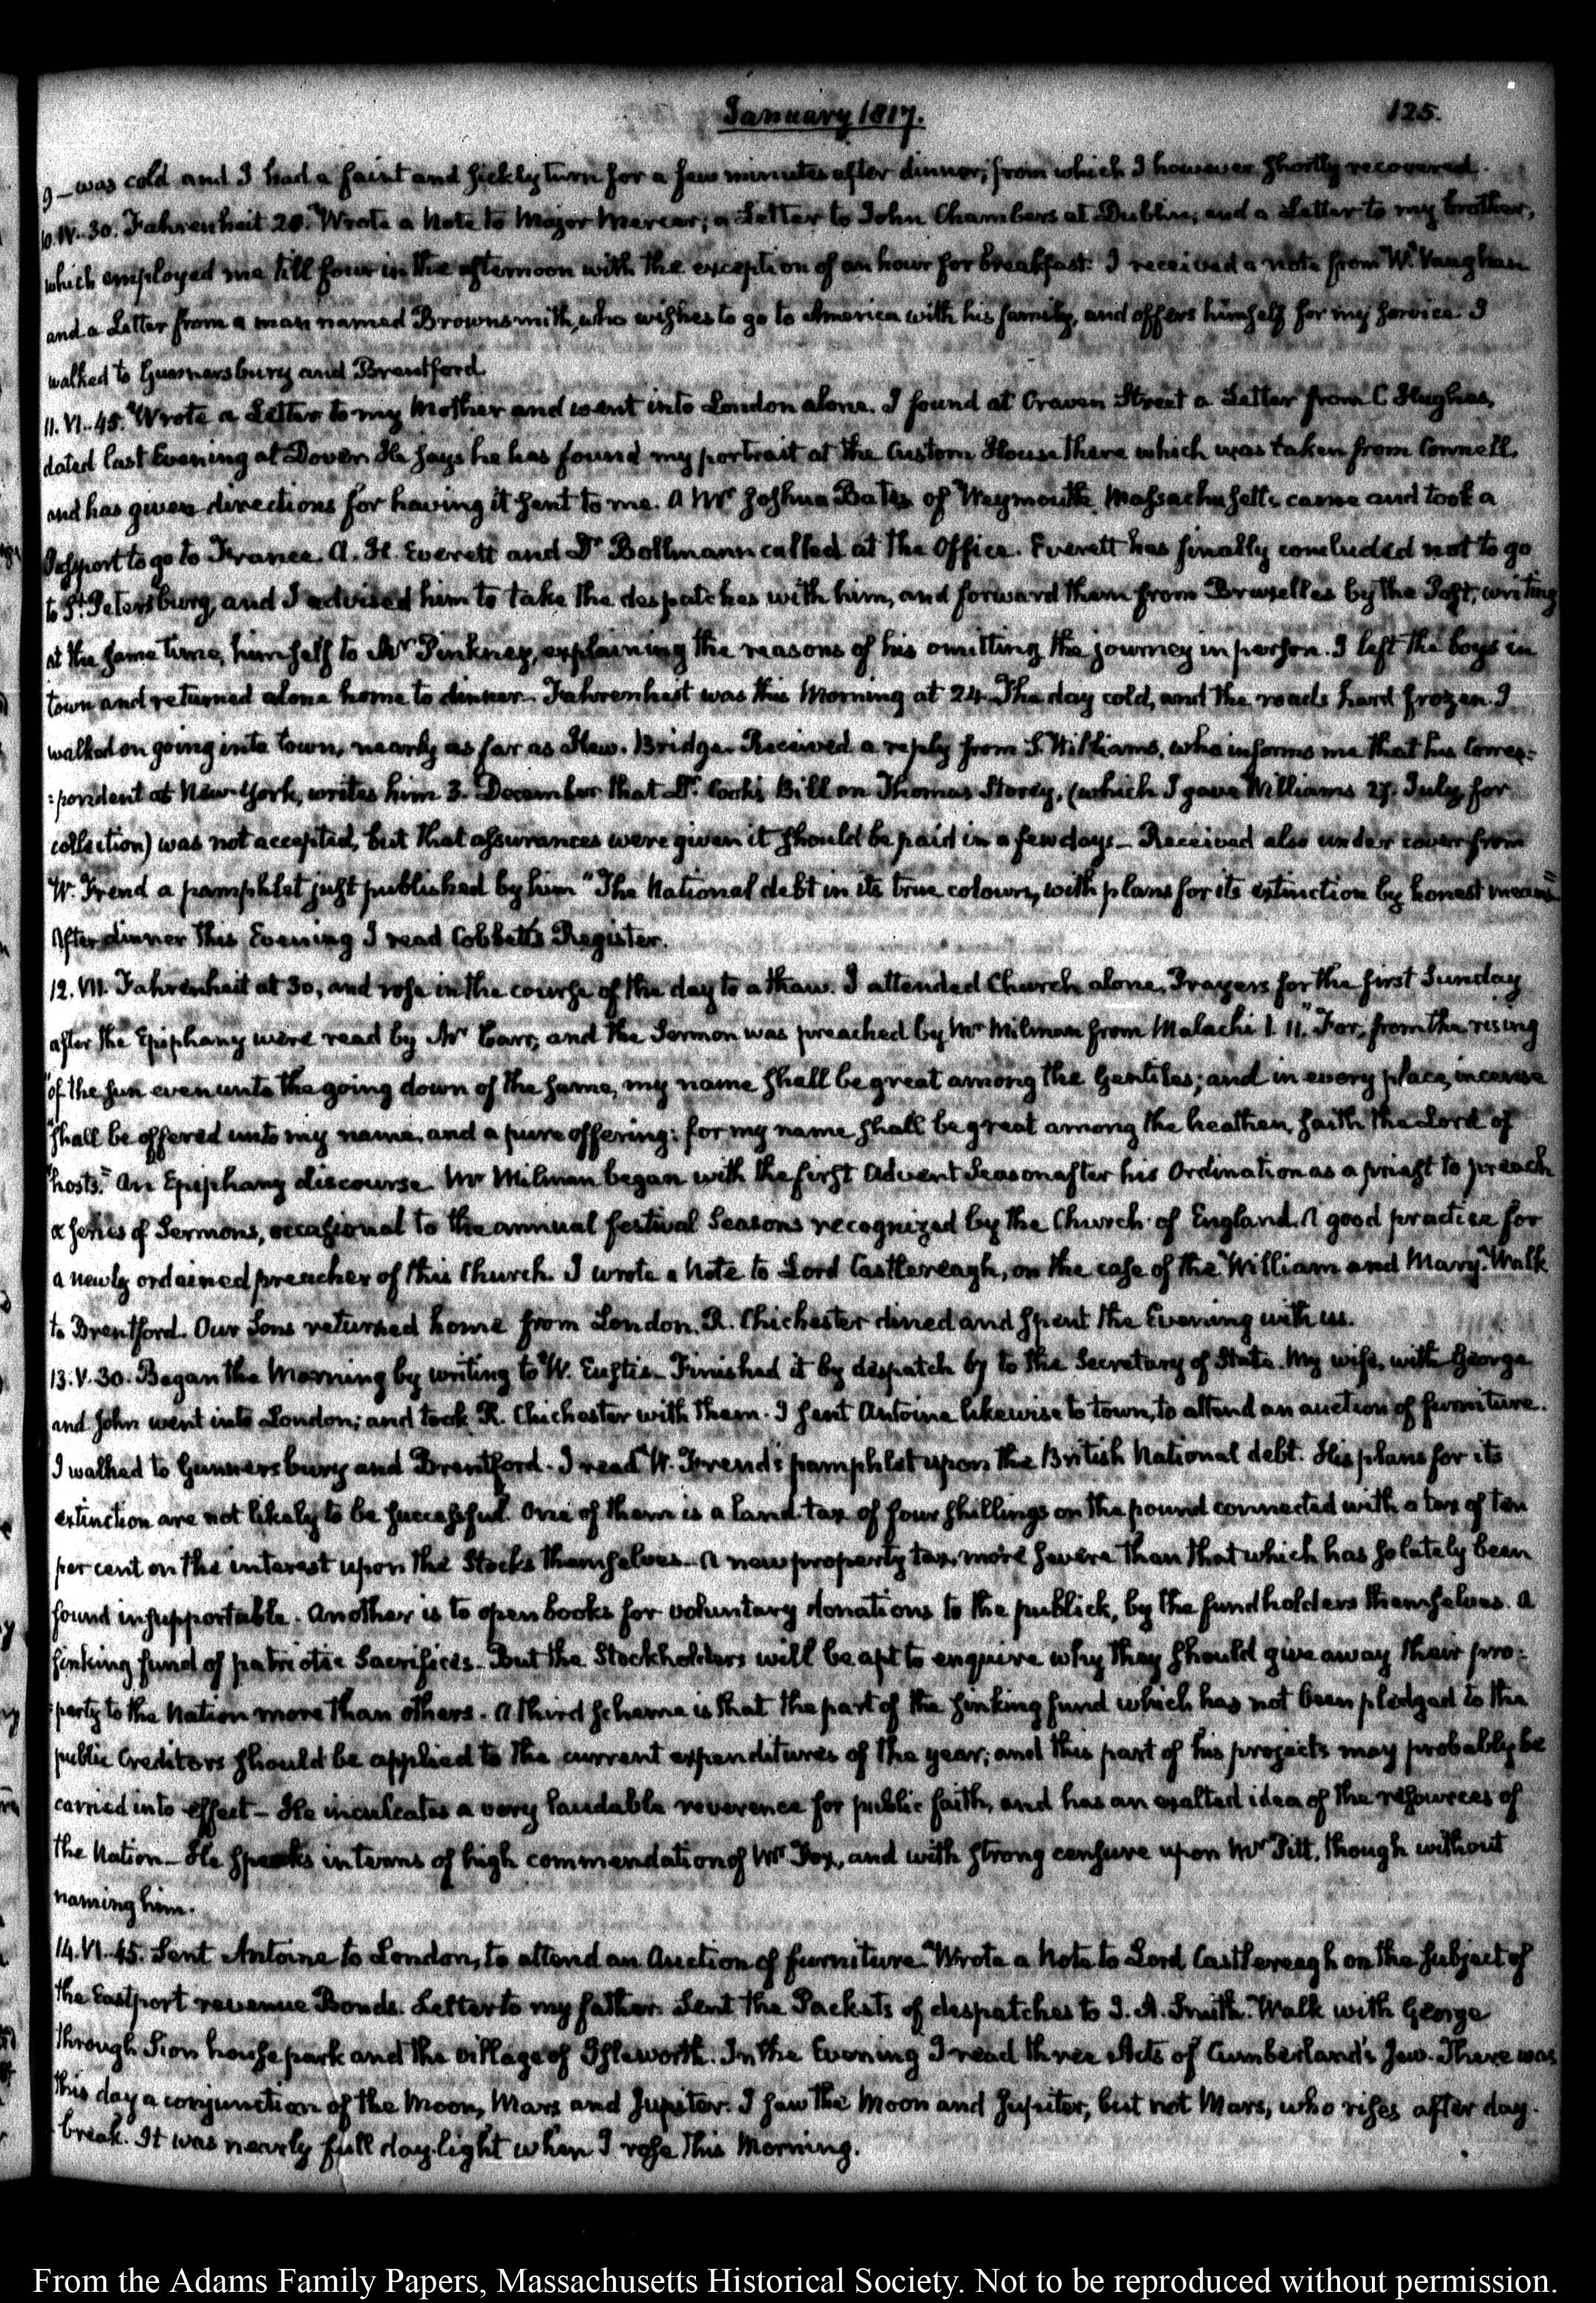 January 1817.
125.
9 — was cold and I had a faint and sickly turn for a few minutes after dinner; from which I however shortly recovered.
10. IV..30. Fahrenheit 28. Wrote a Note to Major Mercer; a Letter to John Chambers at Dublin; and a Letter to my brother,
which employed me till four in the afternoon with the exception of an hour for breakfast. I received a note from W. Vaughan
and a Letter from a man named Brownsmith, who wishes to go to America with his family, and offers himself for my service. I
walked to Gunnersbury and Brentford.
11. VI..45. Wrote a Letter to my Mother and went into London alone. I found at Craven Street a Letter from C Hughes,
dated last Evening at Dover. He says he has found my portrait at the Custom House there which was taken from Connell,
and has given directions for having it sent to me. A Mr Joshua Bates of Weymouth Massachusetts came and took a
Passport to go to France. A. H. Everett and Dr Bollmann called at the Office. Everett has finally concluded not to go
to St Petersburg, and I advised him to take the despatches with him, and forward them from Bruxelles by the Post, writing
at the same time, himself to Mr Pinkney, explaining the reasons of his omitting the journey in person. I left the boys in
town and returned alone home to dinner. Fahrenheit was this Morning at 24. The day cold, and the roads hard frozen. I
walked on going into town, nearly as far as Kew-Bridge. Received a reply from S. Williams, who informs me that his Corres=
=pondent at New-York, writes him 3. December that Dr Cook's Bill on Thomas Storey, (which I gave Williams 27. July for
collection) was not accepted, but that assurances were given it should be paid in a few days — Received also under cover from
W. Frend a pamphlet just published by him "The National debt in its true colours, with plans for its extinction by honest means"
After dinner this Evening I read Cobbett's Register.
12. VII. Fahrenheit at 30, and rose in the course of the day to a thaw. I attended Church alone, Prayers for the first Sunday
after the Epiphany were read by Mr Carr, and the Sermon was preached by Mr Milman from Malachi 1. 11. "For, from the rising
"of the sun even unto the going down of the same, my name shall be great among the Gentiles; and in every place, incense
"shall be offered unto my name, and a pure offering: for my name shall be great among the heathen, saith the Lord of
"hosts." An Epiphany discourse. Mr Milman began with the first Advent Season after his Ordination as a priest to preach
a series of Sermons, occasional to the annual festival Seasons recognized by the Church of England. A good practice for
a newly ordained preacher of this Church. I wrote a Note to Lord Castlereagh, on the case of the William and Mary. Walk
to Brentford. Our Sons returned home from London. R. Chichester dined and spent the Evening with us.
13. V. 30. Began the Morning by writing to W. Eustis — Finished it by despatch 67 to the Secretary of State. My wife, with George
and John went into London; and took R. Chichester with them. I sent Antoine likewise to town, to attend an auction of furniture.
I walked to Gunnersbury and Brentford. I read W. Frend's pamphlet upon the British National debt. His plans for its
extinction are not likely to be successful. One of them is a land-tax of four shillings on the pound connected with a tax of ten
per cent on the interest upon the Stocks themselves — A new property tax, more severe than that which has so lately been
found insupportable. Another is to open books for voluntary donations to the publick, by the fundholders themselves. A
sinking fund of patriotic Sacrifices — But the Stockholders will be apt to enquire why they should give away their pro=
=perty to the Nation more than others. A third scheme is that the part of the sinking fund which has not been pledged to the
public Creditors should be applied to the current expenditures of the year; and this part of his projects may probably be
carried into effect — He inculcates a very laudable reverence for public faith, and has an exalted idea of the resources of
the Nation — He speaks in terms of high commendation of Mr Fox, and with strong censure upon Mr Pitt, though without
naming him.
14. VI..45. Sent Antoine to London, to attend an Auction of furniture. Wrote a Note to Lord Castlereagh on the subject of
the Eastport revenue Bonds. Letter to my father. Sent the Packets of despatches to J. A. Smith. Walk with George
through Sion house park and the village of Isleworth. In the Evening I read three Acts of Cumberland's Jew. There was
this day a conjunction of the Moon, Mars and Jupiter. I saw the Moon and Jupiter, but not Mars, who rises after day-
break. It was nearly full day-light when I rose this Morning.
From the Adams Family Papers, Massachusetts Historical Society. Not to be reproduced without permission.